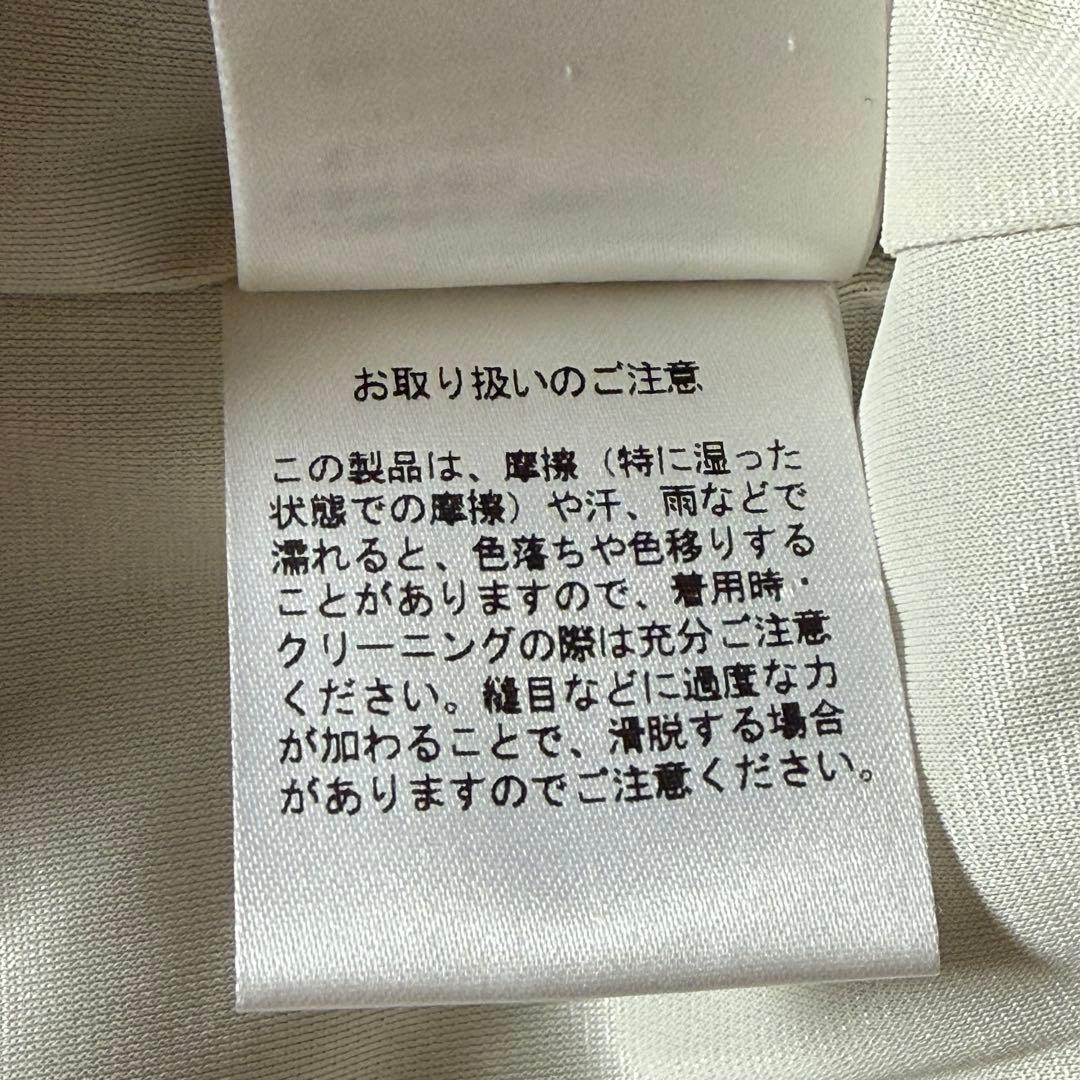 お取り扱いのご注意
この製品は、摩擦（特に湿った
状態での摩擦）や汗、雨などで
濡れると、色落ちや色移りする
ことがありますので、着用時・
クリーニングの際は充分ご注意
ください。縫目などに過度な力
が加わることで、滑脱する場合
がありますのでご注意ください。